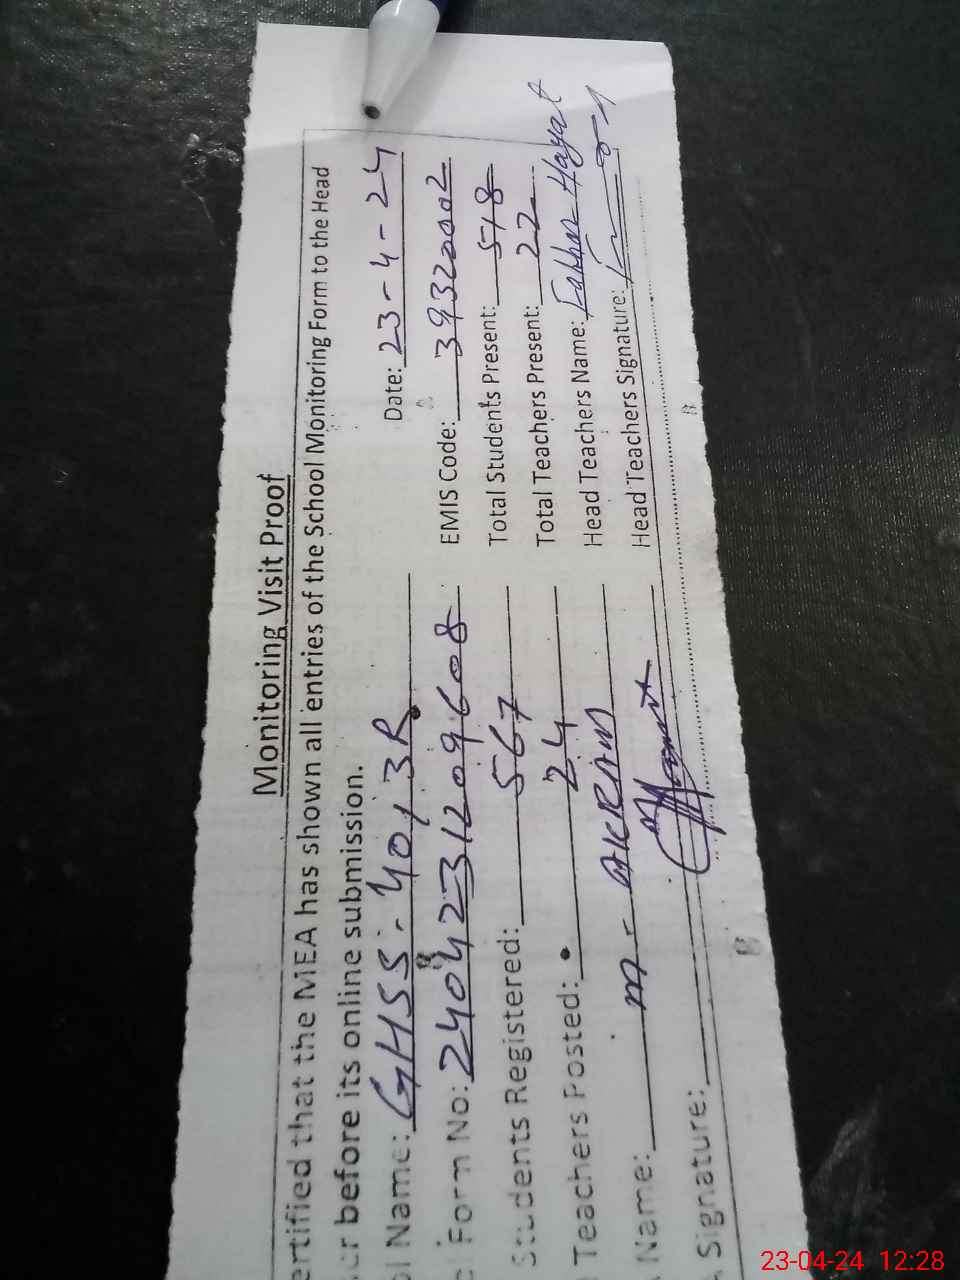 Monitoring Visit Proof
ertified that the MEA has shown all entries of the School Monitoring Form to the Head
er before its online submission.
ol Name: GHSS-40/3R Date: 23-4-24
Form No: 2404231209608 EMIS Code: 39320002
Students Registered: 567 Total Students Present: 518
Teachers Posted: 24 Total Teachers Present: 22
Name: M-AKRAM Head Teachers Name: Fakhar Hayat
Signature: Head Teachers Signature:
23-04-24 12:28